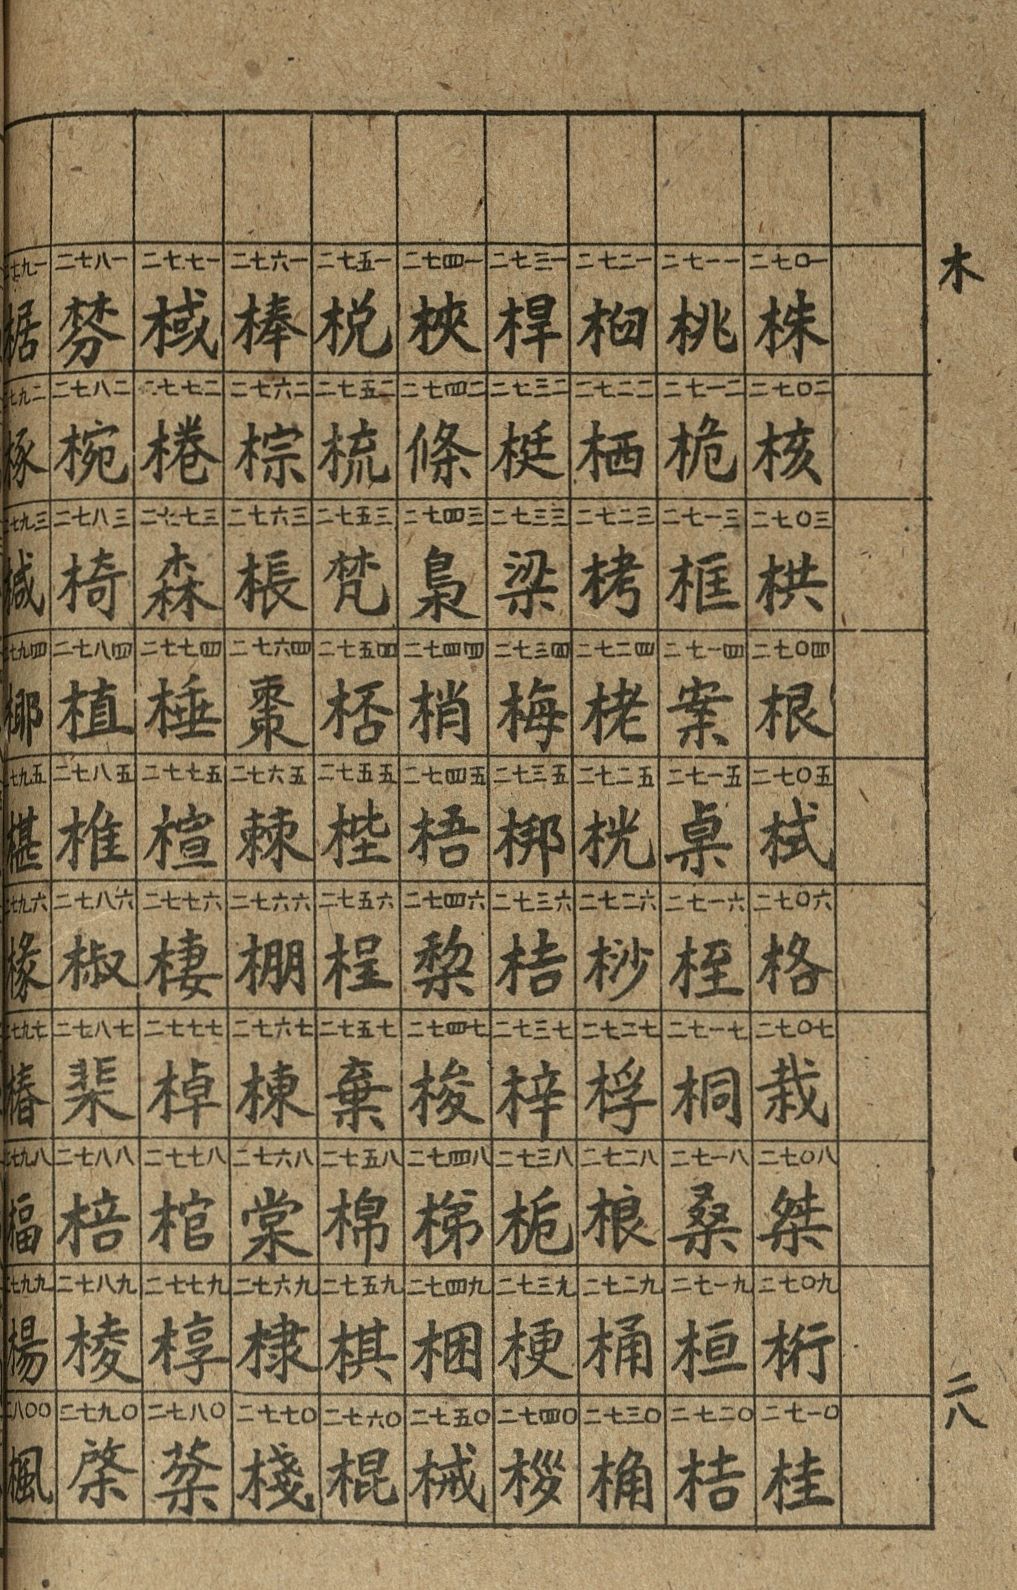 木
二七〇一 株
二七〇二 核
二七〇三 栱
二七〇四 根
二七〇五 栻
二七〇六 格
二七〇七 栽
二七〇八 桀
二七〇九 桁
二七一〇 桂
二七一一 桃
二七一二 桅
二七一三 框
二七一四 案
二七一五 桌
二七一六 桎
二七一七 桐
二七一八 桑
二七一九 桓
二七二〇 桔
二七二一 桕
二七二二 栖
二七二三 栲
二七二四 栳
二七二五 桄
二七二六 桫
二七二七 桴
二七二八 桹
二七二九 桶
二七三〇 桷
二七三一 桿
二七三二 梃
二七三三 梁
二七三四 梅
二七三五 梆
二七三六 梏
二七三七 梓
二七三八 梔
二七三九 梗
二七四〇
二七四一 梜
二七四二 條
二七四三 梟
二七四四 梢
二七四五 梧
二七四六 棃
二七四七 梭
二七四八 梯
二七四九 梱
二七五〇 械
二七五一 梲
二七五二 梳
二七五三 梵
二七五四 桮
二七五五 梐
二七五六 桯
二七五七 棄
二七五八 棉
二七五九 棋
二七六〇 棍
二七六一 棒
二七六二 棕
二七六三 棖
二七六四 棗
二七六五 棘
二七六六 棚
二七六七 棟
二七六八 棠
二七六九 棣
二七七〇 棧
二七七一 棫
二七七二 棬
二七七三 森
二七七四 棰
二七七五 楦
二七七六 棲
二七七七 棹
二七七八 棺
二七七九 椁
二七八〇 棻
二七八一 棼
二七八二 椀
二七八三 椅
二七八四 植
二七八五 椎
二七八六 椒
二七八七 棐
二七八八 棓
二七八九 棱
二七九〇 棨
二七九一 椐
二七九二 椓
二七九三 椷
二七九四 椰
二七九五 椹
二七九六 椽
二七九七 椿
二七九八 楅
二七九九 楊
二八〇〇 楓
二八